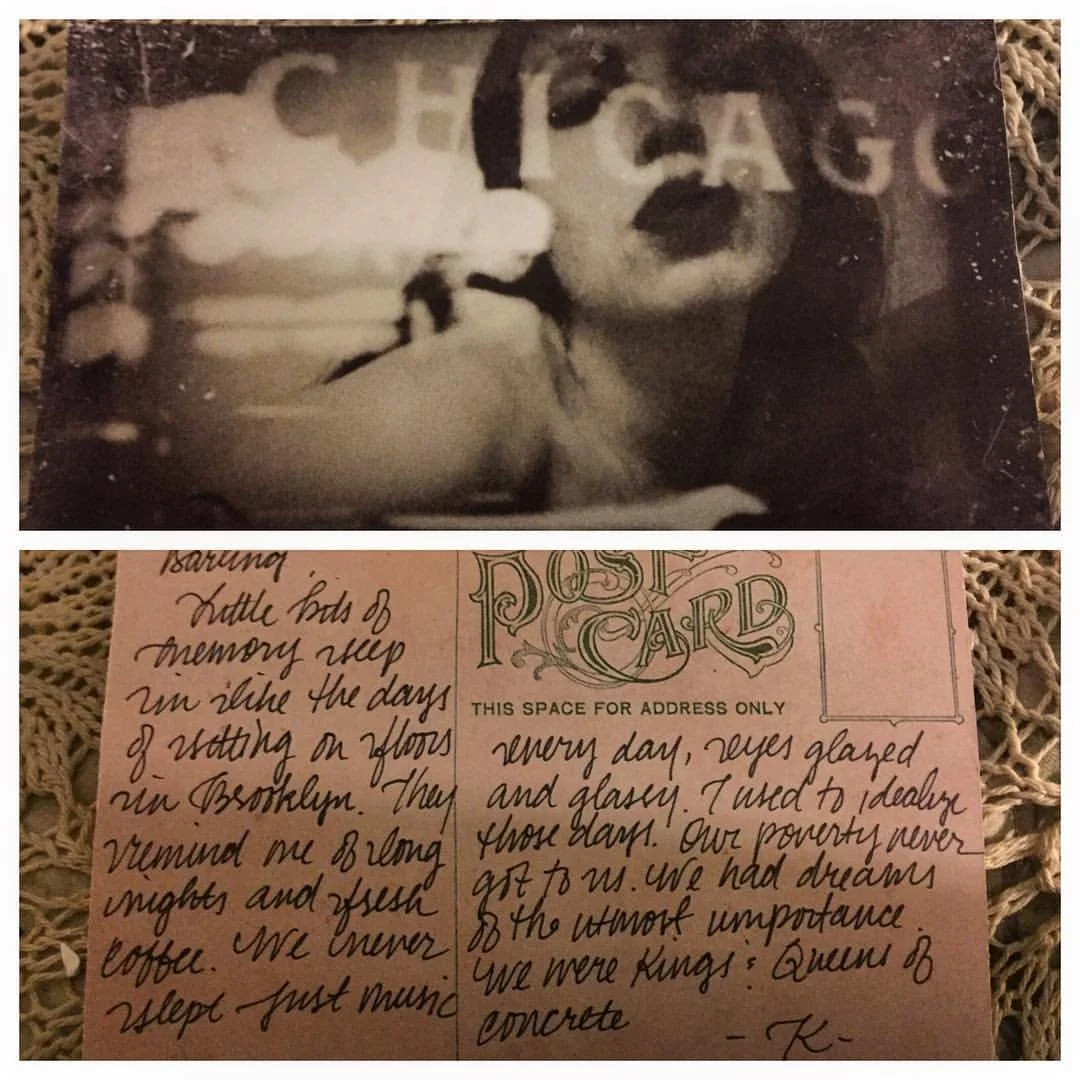 CHICAGO
Darling,
Little bits of
memory seep
in like the days
of sitting on floors
in Brooklyn. They
remind me of long
nights and fresh
coffee. We never
slept just music
POST
CARD
THIS SPACE FOR ADDRESS ONLY
every day, eyes glazed
and glassy. I used to idealize
those days. Our poverty never
got to us. We had dreams
of the utmost importance.
We were Kings & Queens of
concrete
-K-